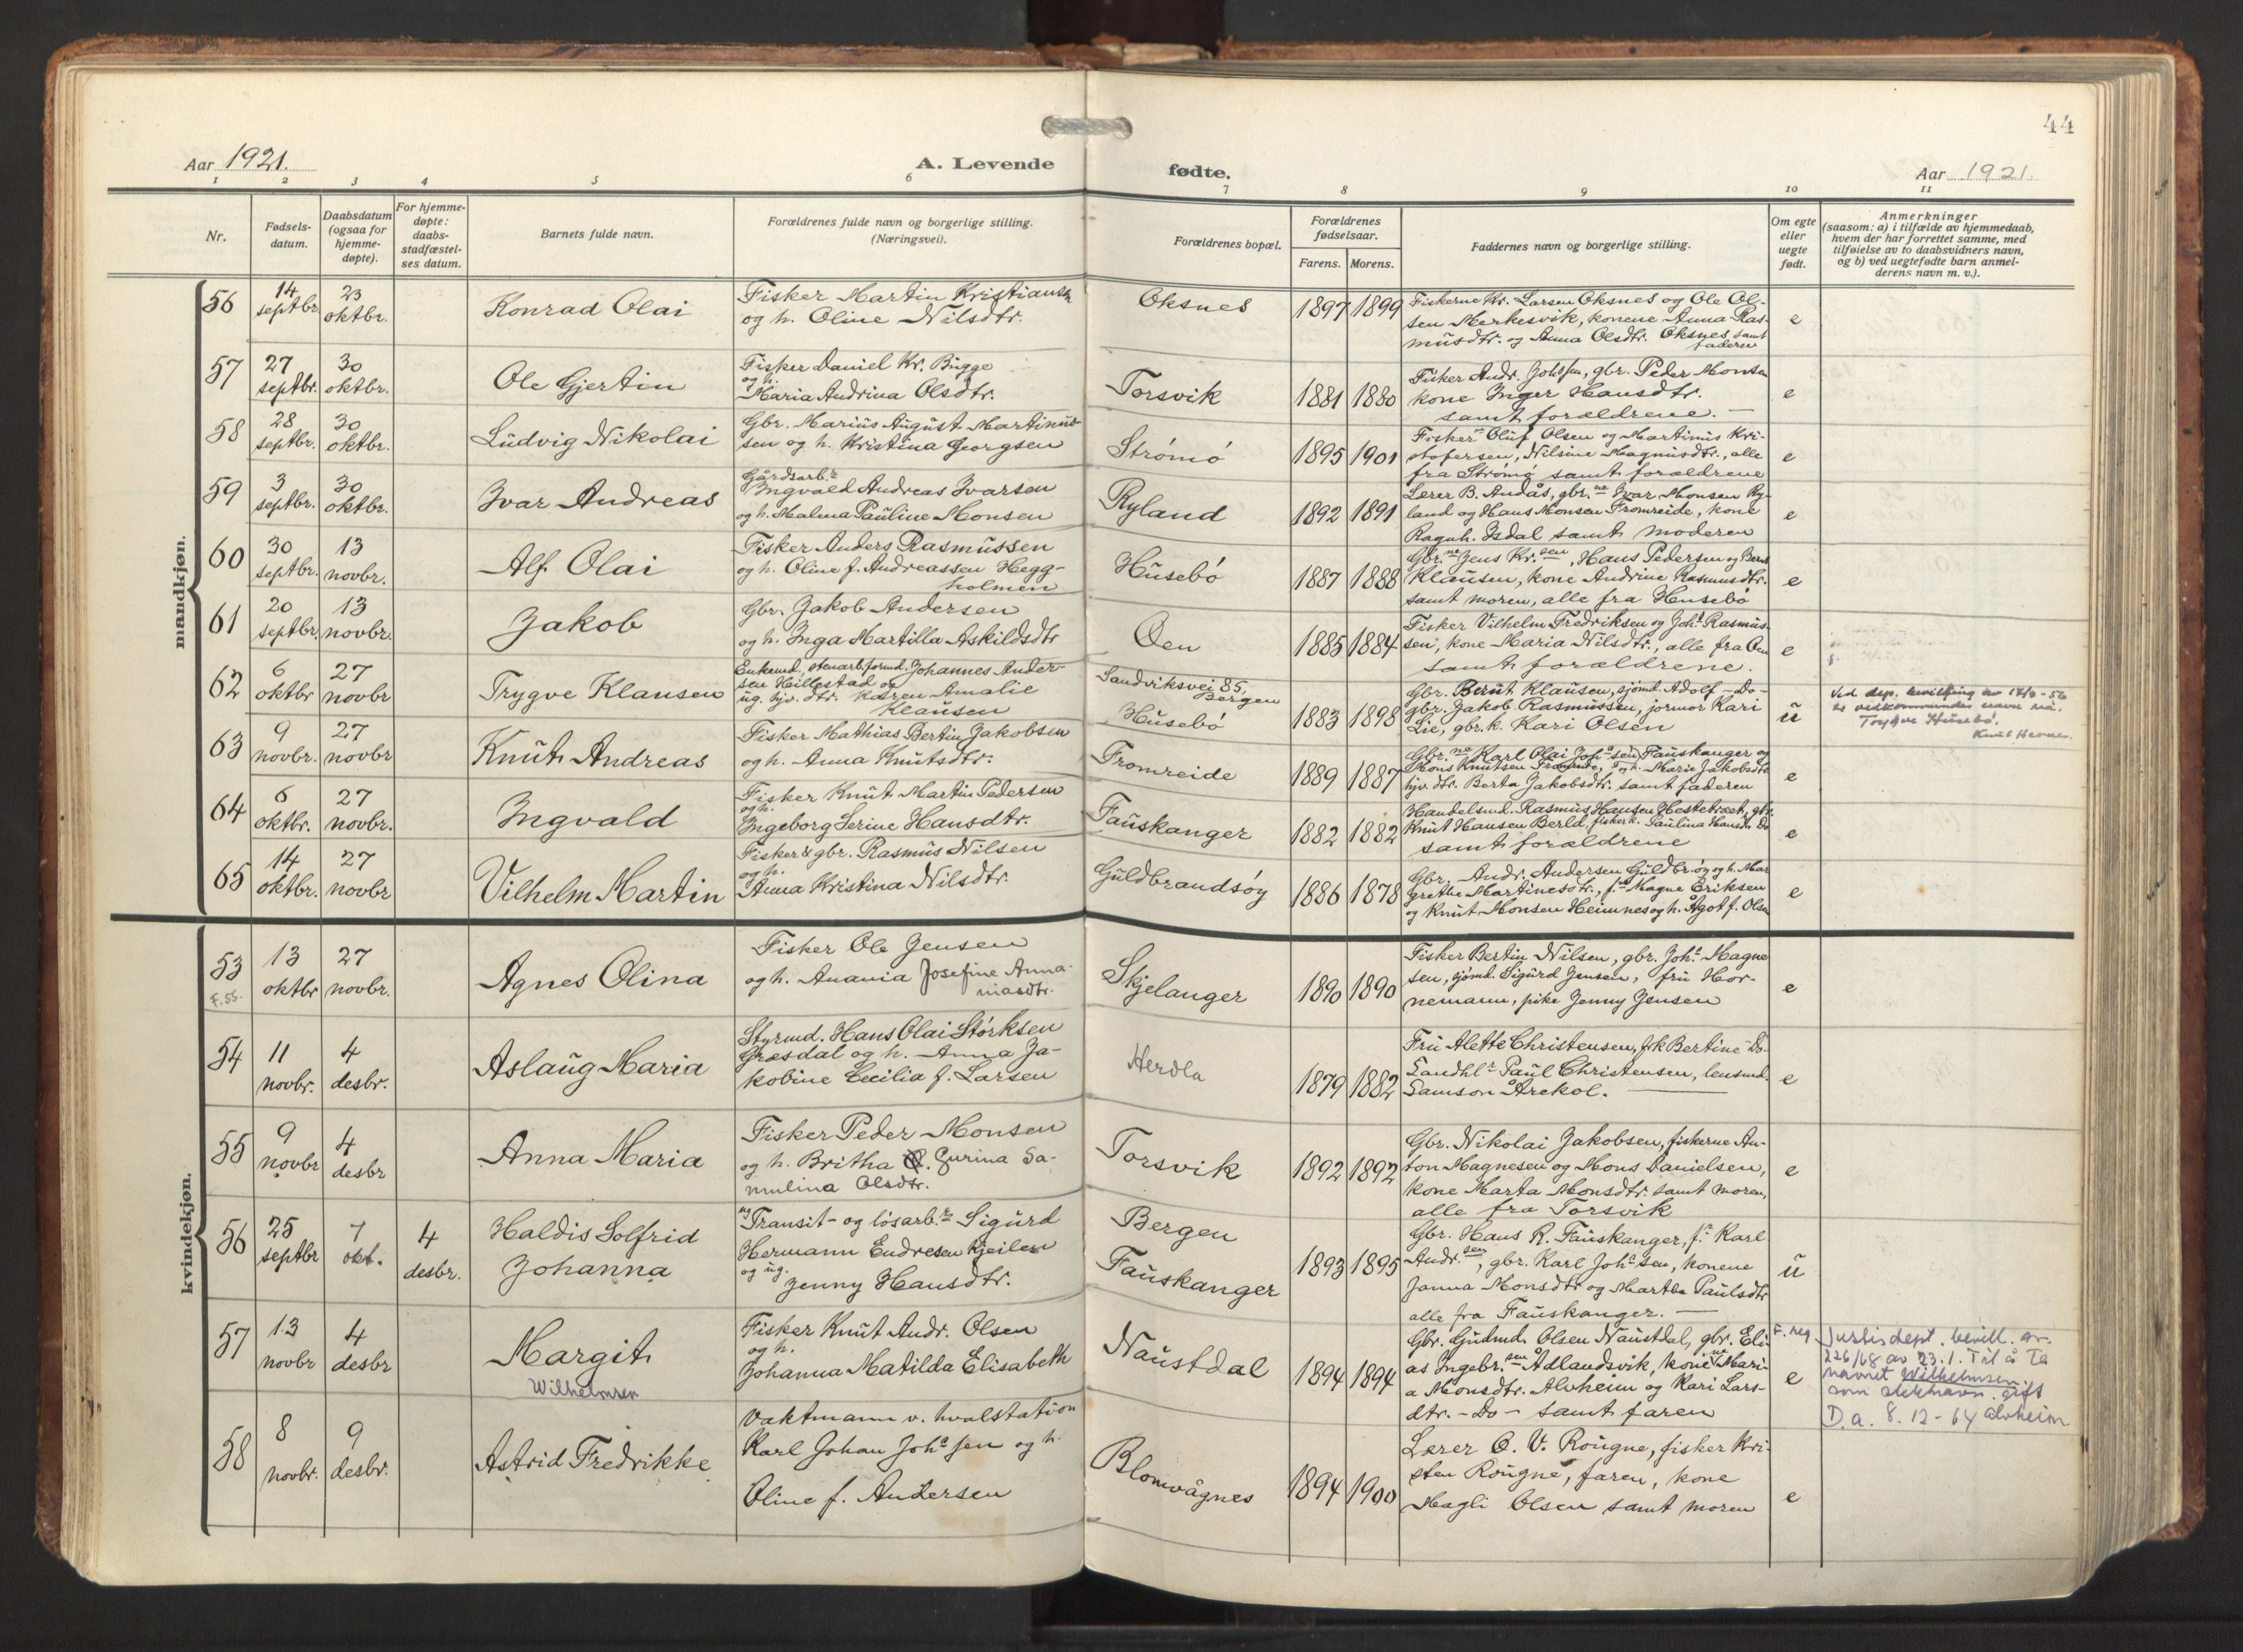 44
Aar 1921.
A. Levende
fødte.
Aar 1921.
1 2 3 4 5 6 7 8 9 10 11
Nr.
Fødsels-
datum.
Daabsdatum
(ogsaa for
hjemme-
døpte).
For hjemme-
døpte:
daabs-
stadfæstel-
ses datum.
Barnets fulde navn.
Forældrenes fulde navn og borgerlige stilling.
(Næringsvei).
Forældrenes bopæl.
Forældrenes
fødselsaar.
Farens. Morens.
Faddernes navn og borgerlige stilling.
Om egte
eller
uegte
født.
Anmerkninger
(saasom: a) i tilfælde av hjemmedaab,
hvem der har forrettet samme, med
tilføielse av to daabsvidners navn,
og b) ved uegtefødte barn anmel-
derens navn m. v.).
mandkjøn.
56
14
septbr.
23
oktbr.
Konrad Olai
Fisker Martin Kristiansen
og h. Oline Nilsdtr.
Oksnes
1897 1899
Fiskerne Kr. Larsen Oksnes og Ole Ol-
sen Merkesvik, konene Anna Ras-
musdtr. og Anna Olsdtr. Oksnes samt
faderen
e
57
27
septbr.
30
oktbr.
Ole Gjertin
Fisker Daniel Kr. Bugge
og h.
Maria Andrina Olsdtr.
Torsvik
1881 1880
Fisker Andr. Johssen, gbr. Peder Monsen
kone Inger Hansdtr.
samt forældrene. —
e
58
28
septbr.
30
oktbr.
Ludvig Nikolai
Gbr. Marius August Martinus-
sen og h. Kristina Georgsen
Strømø
1895 1901
Fiskerne Oluf Olsen og Martinus Kri-
stofersen, Nilsine Magnusdtr., alle
fra Strømø samt forældrene
e
59
3
septbr.
30
oktbr.
Ivar Andreas
Gårdsarb.r
Ingvald Andreas Ivarsen
og h. Malena Pauline Monsen
Ryland
1892 1891
Lærer B. Andås, gbr.ne Ivar Monsen Ry-
land og Hans Monsen Fromreide, kone
Ragnh. Isdal samt moderen
e
60
30
septbr.
13
novbr.
Alf Olai
Fisker Anders Rasmussen
og h. Oline f. Andreassen Hegg-
holmen
Husebø
1887 1888
Gbr.ne Jens Kr.sen, Hans Pedersen og Bernt
Klausen, kone Andrine Rasmusdtr.
samt moren, alle fra Husebø
e
61
20
septbr.
13
novbr.
Jakob
Gbr. Jakob Andersen
og h. Inga Martilla Askildsdtr
Øen
1885 1884
Fisker Vilhelm Fredriksen og Joh.s Rasmus-
sen, kone Maria Nilsdtr., alle fra Øen
samt forældrene.
e
62
6
oktbr
27
novbr
Trygve Klausen
Enkemd. stenarb.formd. Johannes Ander-
sen Hillestad og
ug. hjv. dtr. Karen Amalie
Klausen
Sandviksvei 85,
Bergen
Husebø
1883 1898
Gbr. Bernt Klausen, sjømd. Adolf –Do–
gbr. Jakob Rasmussen, jormor Kari
Lie, gbr.k. Kari Olsen
ú
Ved dep. bevilling av 17/10-56
er vedkommendes navn nå.
Trygve Husebø.
63
9
novbr.
27
novbr
Knut Andreas
Fisker Mathias Bertin Jakobsen
og h. Anna Knutsdtr.
Fromreide
1889 1887
Gbr.ne Karl Olai Joh.s sen Fauskanger og
Mons Knutsen Fromreide, og h. Marie Jakobsdtr.
hjv. dtr. Berta Jakobsdtr. samt faderen
e
64
6
oktbr.
27
novbr.
Ingvald
Fisker Knut Martin Pedersen
og h.
Ingeborg Serine Hansdtr.
Fauskanger
1882 1882
Handelsmd. Rasmus Hansen Hestetræet, gbr.
Knut Hansen Berld, fisker k. Paulina Hansdtr. Do
samt forældrene
e
65
14
oktbr.
27
novbr
Vilhelm Martin
Fisker & gbr. Rasmus Nilsen
og h.
Anna Kristina Nilsdtr.
Guldbrandsøy
1886 1878
Gbr. Andr. Andersen Guldbr.øy og h. Mar
grethe Martinesdtr., f.ne Magne Eriksen
og Knut Monsen Heimnes og h. Ågot f. Olsen
e
kvindekjøn.
53
F. 55.
13
oktbr
27
novbr.
Agnes Olina
Fisker Ole Jensen
og h. Anania Josefine Anna-
niasdtr.
Skjelanger
1890 1890
Fisker Bertin Nilsen, gbr. Joh.s Magne
sen, sjømd. Sigurd Jensen, fru Hor-
nemann, pike Jenny Jensen
e
54
11
novbr.
4
desbr.
Aslaug Maria
Styrmd. Hans Olai Størksen
Græsdal og h. Anna Ja-
kobine Cecilia f. Larsen
Herdla
1879 1882
Fru Alette Christensen, frk Bertine –Do–
Landhl.r Paul Christensen, lensmd.
Samson Årekol. —
e
55
9
novbr
4
desbr
Anna Maria
Fisker Peder Monsen
og h. Britha Gurina Sa-
mulina Olsdtr.
Torsvik
1892 1892
Gbr. Nikolai Jakobsen, fiskerne An-
ton Magnesen og Mons Danielsen,
kone Marta Monsdtr. samt moren,
alle fra Torsvik
e
56
25
septbr
7
okt.
4
desbr.
Haldis Solfrid
Johanna
ug Transit- og løsarb.r Sigurd
Hermann Endresen Kjeilen
og ug.
Jenny Hansdtr.
Bergen
Fauskanger
1893 1895
Gbr. Hans R. Fauskanger, f.r Karl
Andr.sen, gbr. Karl Joh.s sen, konene
Janna Monsdtr og Martha Paulsdtr
alle fra Fauskanger. —
ú
57
13
novbr
4
desbr
Margit
Wilhelmsen
Fisker Knut Andr. Olsen
og h.
Johanna Matilda Elisabeth
Naustdal
1894 1894
Gbr. Gudmd. Olsen Naustdal, gbr. Eli-
as Ingebr.sen Ådlandsvik, kone Mari-
a Monsdtr. Alvheim og Kari Lars-
dtr. –Do– samt faren
e
F. reg
Justisdept. bevill. nr.
226/68 av 23.1. Til å ta
navnet Wilhelmsen
som slektnavn. gift
D.a. 8.12-64 Alvheim
58
8
novbr.
9
desbr.
Astrid Fredrikke
Vaktmann v. hvalstation
Karl Johan Joh.s sen og h.
Oline f. Andersen
Blomvågnes
1894 1900
Lærer O. V. Rougne, fisker Kri-
sten Rougne, faren, kone
Magli Olsen samt moren
e